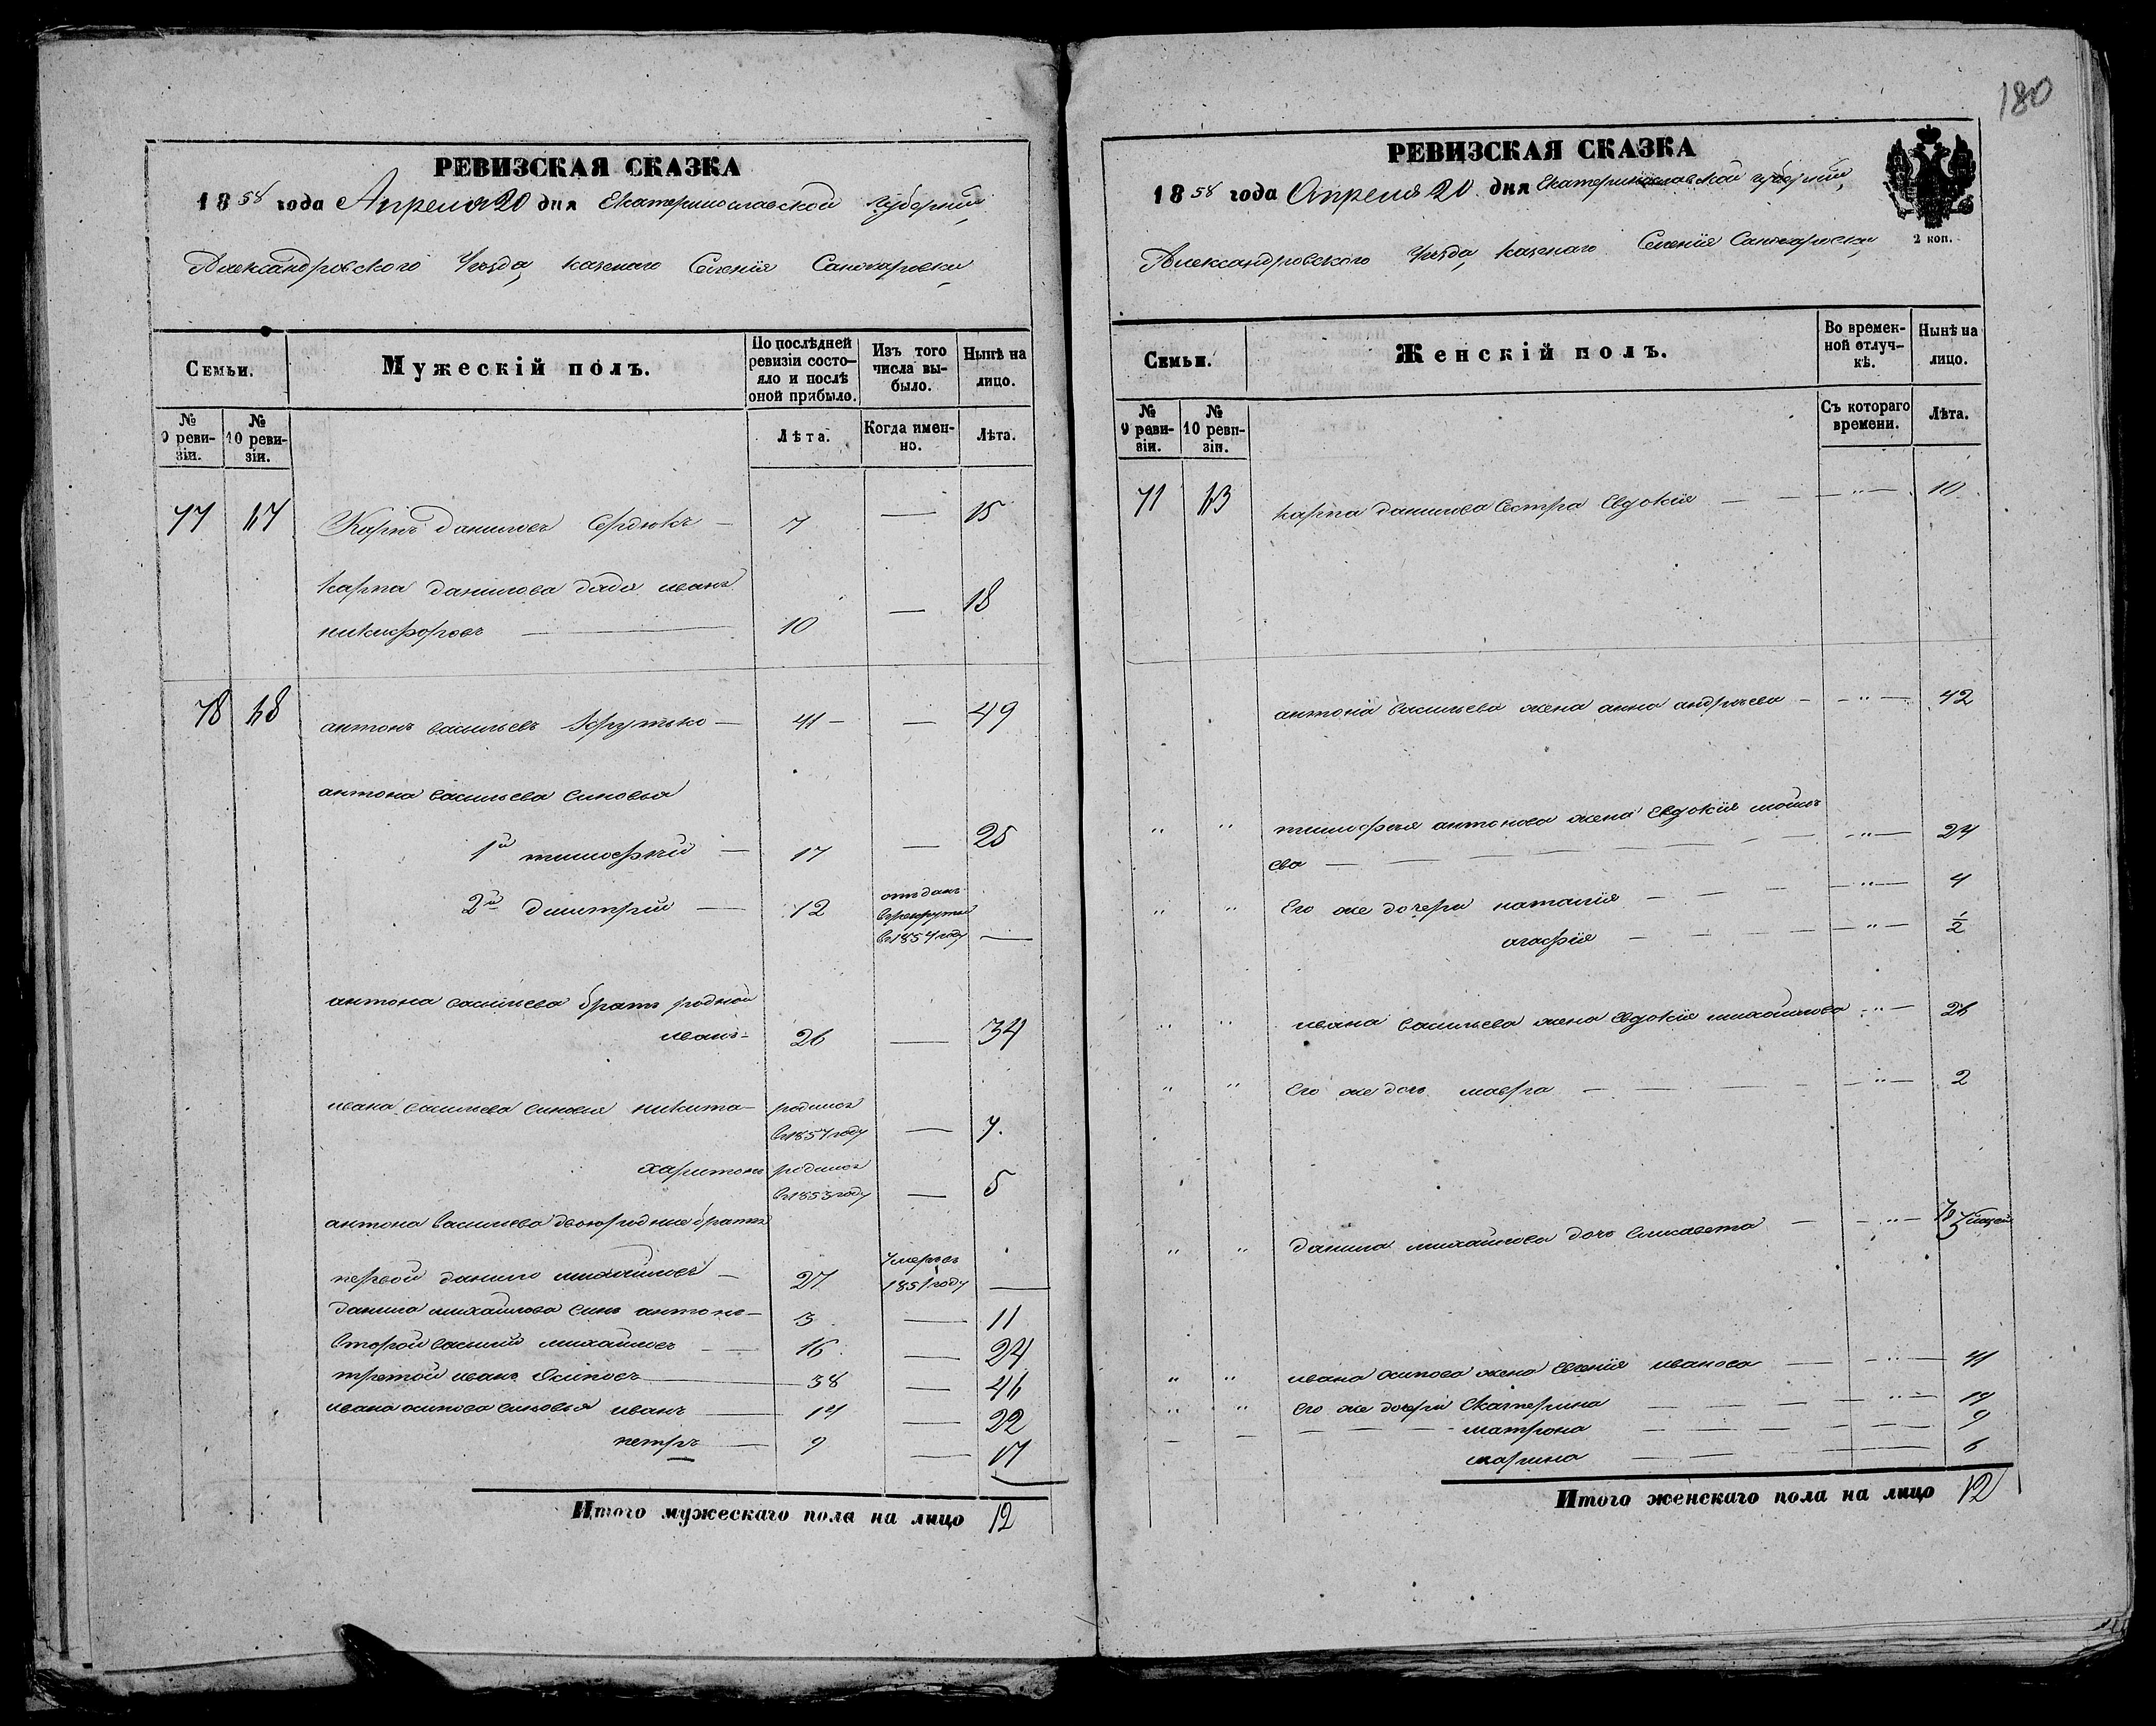 180
РЕВИЗСКАЯ СКАЗКА
1858 года Апреля 20 дня Екатеринославской Губернии,
Александровского Уезда, казеного Селения Санжаровки,
Семьи.
Мужескій полъ.
По послѣдней ревизіи состо-
яло и послѣ
оной прибыло.
Изъ того
числа вы-
было.
Нынѣ на
лицо.
№
9 реви-
зіи.
№
10 реви-
зіи.
Лѣта.
Когда имен-
но.
Лѣта.
77 Карпъ даниловъ Сердюкъ — 7 — 15
карпа данилова дядя иванъ
никифоровъ — 10 — 18
78 антонъ васильевъ Крутько — 41 — — 49
антона васильева синовья
1й тимофей — 17 — 25
2й дмитрий — 12 отданъ
в рекруты
в 1854 году —
антона васильева братъ родной
иванъ — 26 — 34
ивана васильева синовья никита — родился
в 1854 году — 4.
харитонъ родился
в 1853 году — 5
антона васильева двоюродние братья
первой данило михайловъ — 27 умеръ в
1851 году —
данила михайлова синъ антонъ — 3 — 11
второй василий михайловъ — 16 — 24
третой иванъ Осиповъ — 38 — 46
ивана осипова синовья иванъ — 14 — 22
петръ — 9 — 17
Итого мужескаго пола на лицо 12
РЕВИЗСКАЯ СКАЗКА
1858 года Апреля 20 дня Екатеринославской губернии,
Александровского Уезда, казеного Селения Санжаровки,
2 коп.
Семьи.
Женскій полъ.
Во времен-
ной отлуч-
кѣ.
Нынѣ на
лицо.
№
9 реви-
зіи.
№
10 реви-
зіи.
Съ котораго
времени.
Лѣта.
71 карпа данилова сестра Евдокия — — — " — 10
антона васильева жена анна андреева — — " — 42
" " тимофея антонова жена Евдокия моисе
ева — — " — 24
" " Его же дочери наталия — — — " — 4
агафия — — — " — 1/2
" " ивана васильева жена Евдокия михайлова — " — 26
" " Его же дочь мавра — — — " — 2
" " данила михайлова дочь Елисавета — — " —
" " ивана осипова жена Евгения иванова — — " — 41
" " Его же дочери Екатерина — — — " — 14
матрона — — — 9
марина — — — 6
Итого женскаго пола на лицо 12